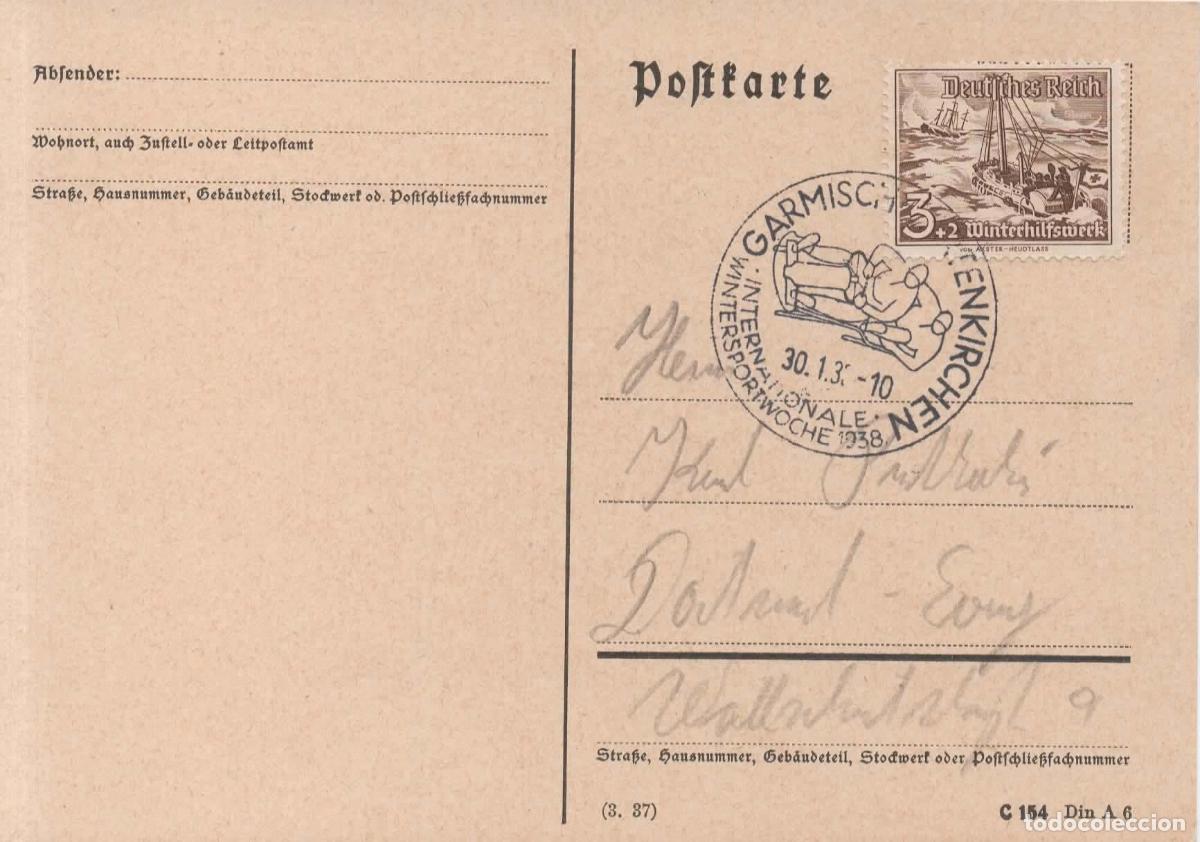 Absender:
Wohnort, auch Zustell- oder Leitpostamt
Straße, Hausnummer, Gebäudeteil, Stockwerk od. Postschließfachnummer
Postkarte
Deutsches Reich
3+2 Winterhilfswerk
VON AXSTER-HEUDTLASS
GARMISCH TENKIRCHEN
30.1.3 -10
·INTERNATIONALE·
WINTERSPORTWOCHE 1938
Herrn
Dortmund - Eving
9
Straße, Hausnummer, Gebäudeteil, Stockwerk oder Postschließfachnummer
(3. 37)
C 154 Din A 6
todocoleccion